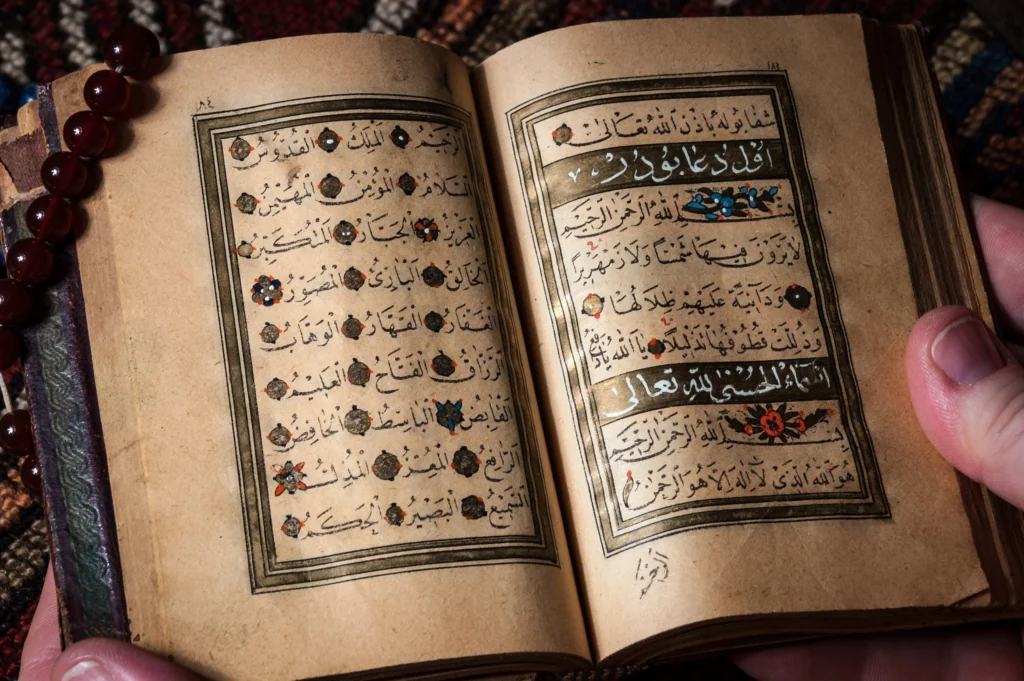 ١٨٤
شفا بوله باذن الله تعالى
اول دعا بودر
بسم الله الرحمن الرحيم
لا يرون فيها شمسا ولا زمهريرا
ودانية عليهم ظلالها
وذللت قطوفها تذليلا يا الله
اسماء الحسنى لله تعالى
بسم الله الرحمن الرحيم
هو الله الذى لا اله الا هو الرحمن
الرحيم
١٨٤
الرحيم الملك القدوس
السلام المؤمن المهيمن
العزيز الجبار المتكبر
الخالق البارئ المصور
الغفار القهار الوهاب
الرزاق الفتاح العليم
القابض الباسط الخافض
الرافع المعز المذل
السميع البصير الحكم